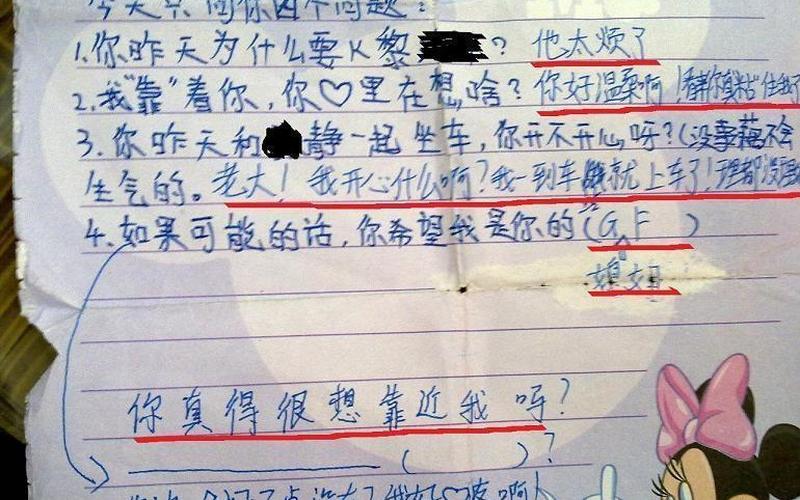 今天只问你四个问题：
1.你昨天为什么要K黎？他太烦了
2.我“靠”着你，你♡里在想啥？你好温柔啊！
3.你昨天和静一起坐车，你开不开心呀？（没事藕不会
生气的。老大！我开心什么啊？我一到车就上车了！理都没理
4.如果可能的话，你希望我是你的（G.F）
你真得很想靠近我呀？
（ ）？